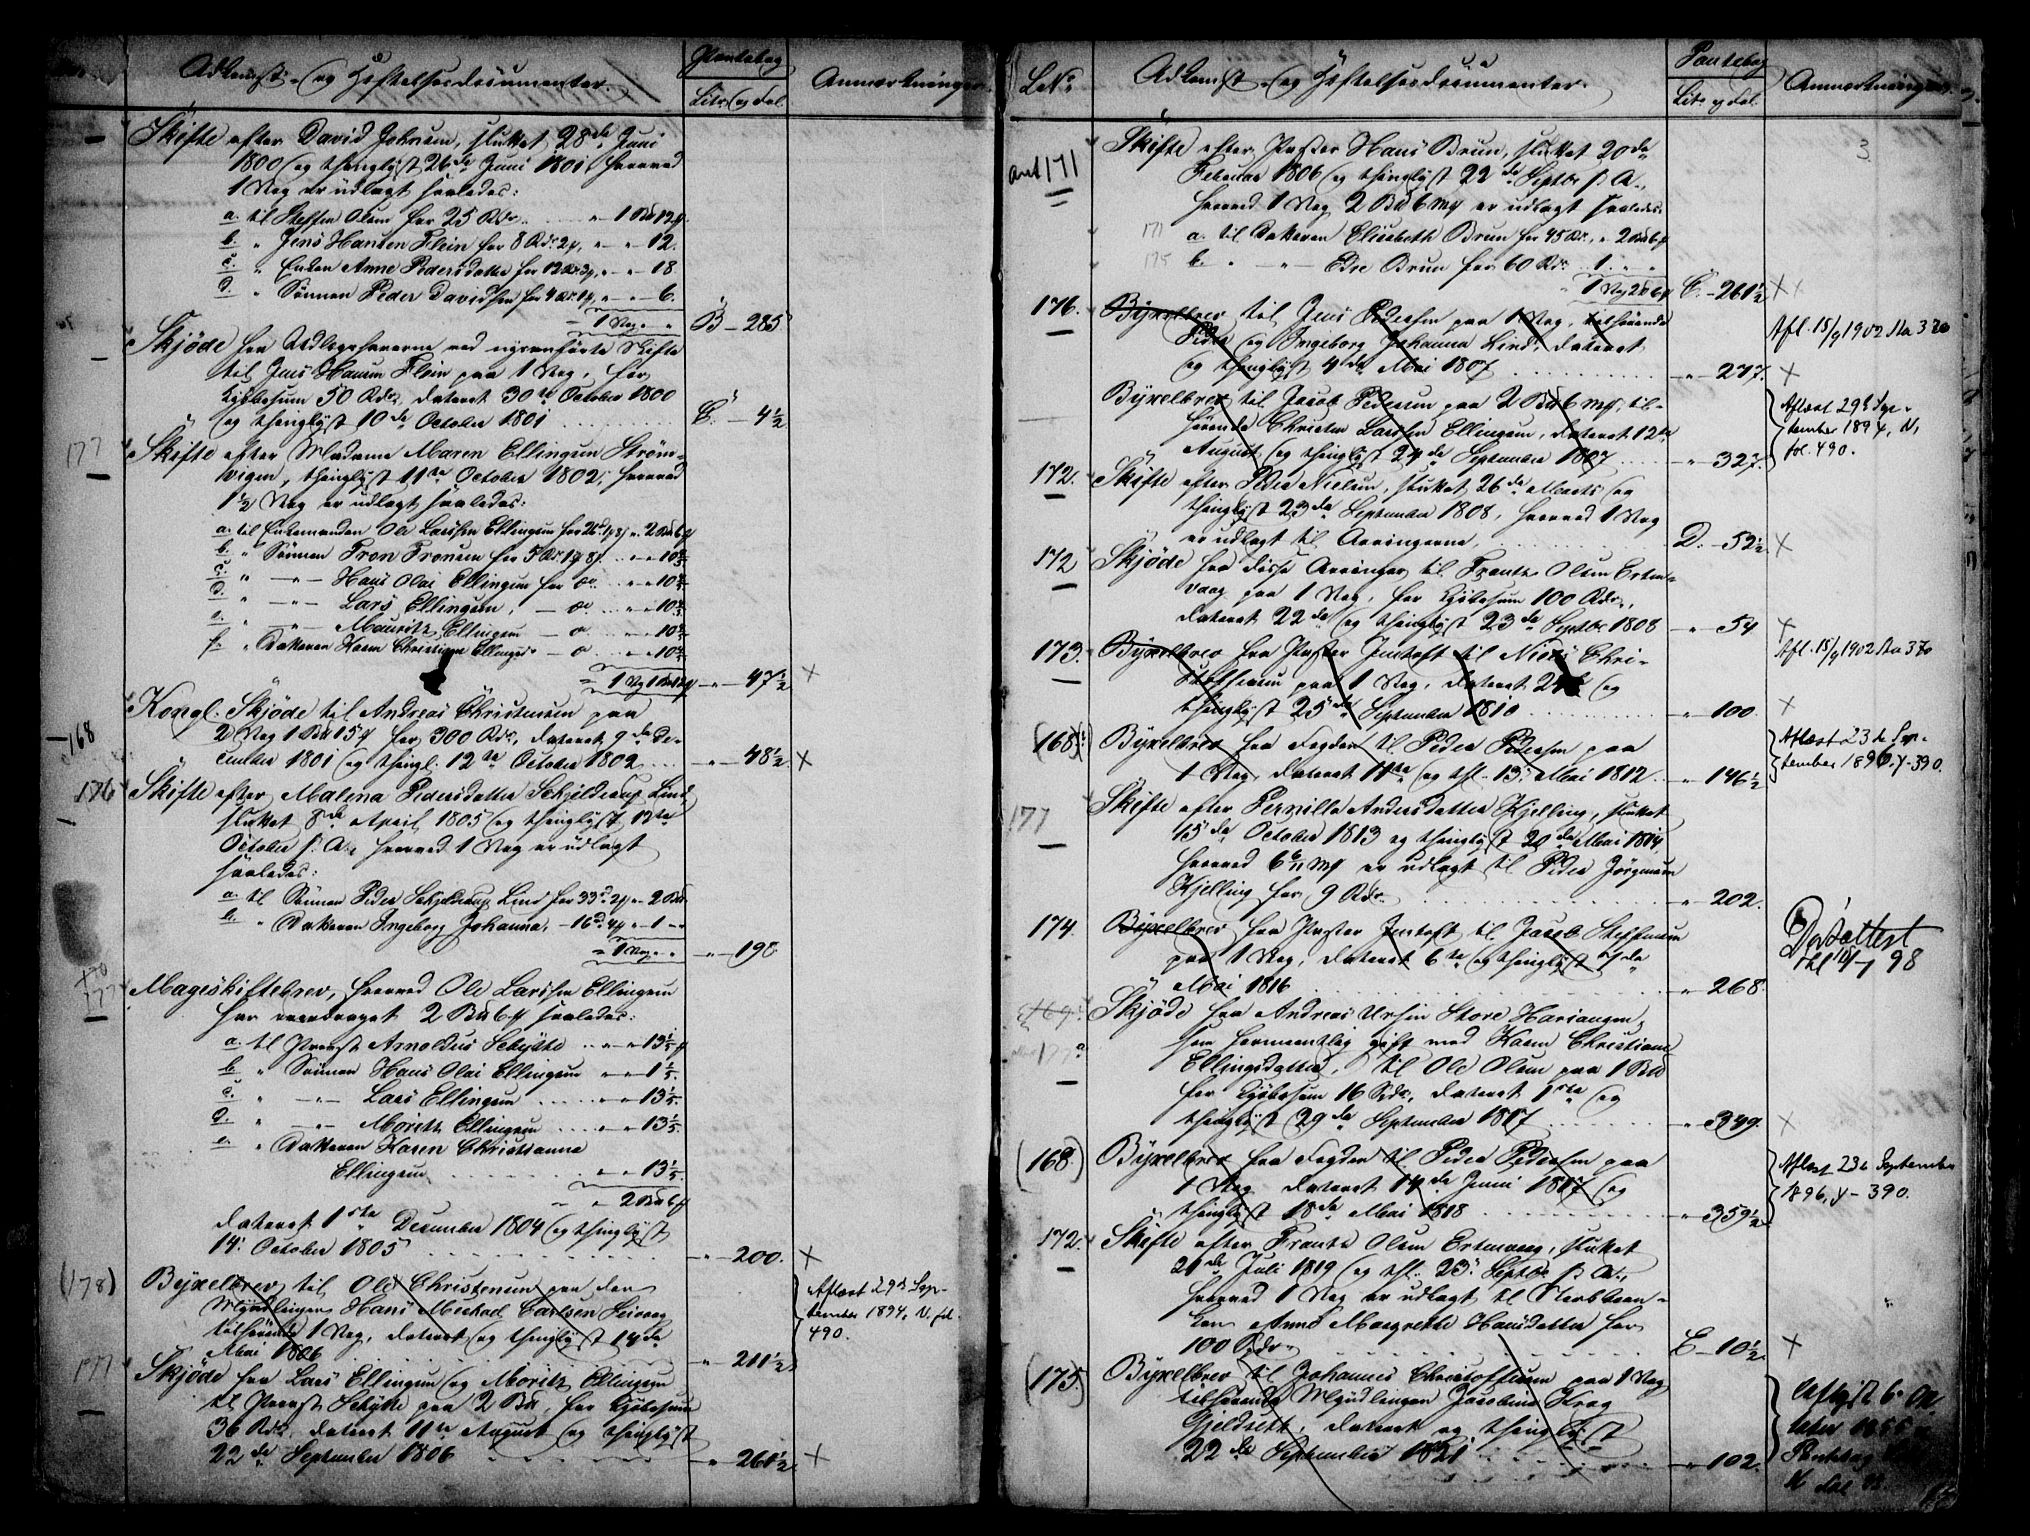 Adkomst- og Hæftelsesdocumenter.
Pantebog
Litr. og Fol.
Anmærkninger.
Skifte efter David Johnsen, sluttet 28de Juni
1800 og thinglyst 26de Juni 1801, hvorved
1 Vog er udlagt saaledes:
a. til Steffen Olsen for 25 Rdr. " 1 Bd 12 #
b. " Jens Hansen Flein for 8 Rdr. 2 #, " " 12.
c. " Enken Anne Pedersdatter for 12 Rdr. 3 #, " " 18
d. " Sönnen Peder Davidsen for 4 Rdr. 1 #, " " 6.
= 1 Vog " "
B - 285
Skjöde fra Udlægshaverne ved ovenförte Skifte
til Jens Hansen Flein paa 1 Vog, for
Kjöbesum 50 Rdr., dateret 30te October 1800
og thinglyst 10de October 1801
C. - 4½
177
Skifte efter Madame Maren Ellingsen Ström-
vigen, thinglyst 11te October 1802, hvorved
1½ Vog er udlagt saaledes:
a. til Enkemanden Ole Larssen Ellingsen for " 2 Bd 6 #
b. " Sönnen Tron Tronsen for 5 Rdr. 1 # 8 s. " " 10⅘
c. " —"— Hans Olai Ellingsen for do. " " 10⅘
d. " —"— Lars Ellingsen, — do. " " 10⅘
e. " —"— Mauritz Ellingsen — do. " " 10⅘
f. " Datteren Karen Christiane Ellingsd. — do " " 10⅘
= 1 Vog 1 Bd 12 #
" - 47½
×
168
Kongl. Skjöde til Andreas Christensen paa
2 Vog 1 Bd 15 # for 300 Rdr., dateret 9de De-
cember 1801 og thingl. 12te October 1802
" - 48½
×
176
Skifte efter Malena Pedersdatter Schjelderup Lind
sluttet 8de April 1805 og thinglyst 12te
October s. A., hvorved 1 Vog er udlagt
saaledes:
a. til Sönnen Peder Schjelderup Lind for 33 d. 2 # " 2 Bd
b. " Datteren Ingeborg Johanna, - 16 d. 4 # " 1 —
= 1 Vog " "
" - 190
170
177
Mageskiftebrev, hvorved Ole Larssen Ellingsen
har overdraget 2 Bd 6 # saaledes:
a. til Provst Arnoldus Schytte " " 13⅕ #
b. " Sönnen Hans Olai Ellingsen " " 1⅕.
c. " —"— Lars Ellingsen " " 13⅕.
d. " —"— Moritz Ellingsen " " 13⅕.
e. " Datteren Karen Christianne
Ellingsen " " 13⅕
" " 2 Bd 6 #
dateret 1ste December 1804 og thinglyst
14. October 1805
" - 200.
×
(178)
Byxelbrev til Ole Christensen paa den
Myndlingen Hans Carlsen
tilhörende 1 Vog, dateret og thinglyst 14de
Mai 1806
" - 211½
Aflæst 29de Sep-
tember 1894, N. fol.
490.
177
Skjöde fra Lars Ellingsen og Moritz Ellingsen
til Provst Schytte paa 2 Bd, for Kjöbesum
36 Rdr., dateret 11te August og thinglyst
22de September 1806
" - 261½
×
L.No.
Adkomst- og Hæftelsesdocumenter.
Pantebog
Litr. og Fol.
Anmærkninger.
3
171
Skifte efter Provst Hans Brun, sluttet 20de
Februar 1806 og thinglyst 22de Septbr. s. A.,
hvorved 1 Vog 2 Bd 6 mk er udlagt saaledes:
171
a. til Datteren Elisabeth Brun for 45 Rdr., " 2 Bd 6 #
175
b. " —"— Edve Brun for 60 Rdr. 1. " "
1 Vog 2 Bd 6 #
C. - 261½
××
176.
Byxelbrev til Jens Pedersen paa 1 Vog, tilhörende
Peder og Ingeborg Johanna Lind, dateret
og thinglyst 4de Mai 1807
" - 277.
×
Afl. 15/9 1902 No 370
Byxelbrev til Jacob Pedersen paa 2 Bd 6 mk, til-
hörende Christen Larssen Ellingsen, dateret 12te
August, og thinglyst 24de September 1807
" - 327.
Aflæst 29de Sep-
tember 1894, N,
fol. 490.
172.
Skifte efter Peder Nielsen, sluttet 26de Marts og
thinglyst 23de September 1808, hvorved 1 Vog
er udlagt til Arvingerne
D. - 52½
×
172
Skjöde fra disse Arvinger til Frantz Olsen Ertm-
vaag paa 1 Vog, for Kjöbesum 100 Rdr.,
dateret 22de og thinglyst 23de Septbr. 1808
" - 54
×
173.
Byxelbrev fra Provst Jentoft til Niels Chri-
stoffersen paa 1 Vog, dateret 24de og
thinglyst 25de September 1810
" - 100.
×
Afl. 15/9 1902 No 370
(168)
Byxelbrev fra Fogden til Peder Pedersen paa
1 Vog, dateret 11te og thl. 13. Mai 1812.
" - 146½
Aflæst 23de Sep-
tember 1896, Y-390.
177
Skifte efter Pernille Andersdatter Kjelling, sluttet
15de October 1813 og thinglyst 20de Mai 1814,
hvorved 6 6/11 mk er udlagt til Peder Jörgensen
Kjelling for 9 Rdr.
" - 202.
174.
Byxelbrev fra Provst Jentoft til Jacob Steffensen
paa 1 Vog, dateret 6te og thinglyst 7de
Mai 1816
" - 268.
98
169.
177
Skjöde fra Andreas Ursin Store Hariangen,
som formentlig gift med Karen Christiane
Ellingsdatter, til Ole Olsen paa 1 Bd
for Kjöbesum 16 Sdr., dateret 1ste og
thinglyst 29de September 1817
" - 349.
×
(168)
Byxelbrev fra Fogden til Peder Pedersen paa
1 Vog dateret 14de Juni 1817 og
thinglyst 18de Mai 1818
" - 359½
Aflæst 23de September
1896, Y-390.
172.
Skifte efter Frantz Olsen Ertmvaag, sluttet
21de Juli 1819 og thl. 23. Septbr. s. A.,
hvorved 1 Vog er udlagt til Stervboen-
ken Anne Margrethe Hansdatter for
100 Rdr.
E - 10½.
×
(175.)
Byxelbrev til Johannes Christoffersen paa 1 Vog
tilhörende Myndlingen Jacobine Krog
Gjeldseth, dateret og thinglyst
22de September 1821
" - 102.
Aflyst 6. Oc-
tober 1855
Pantebog
fol